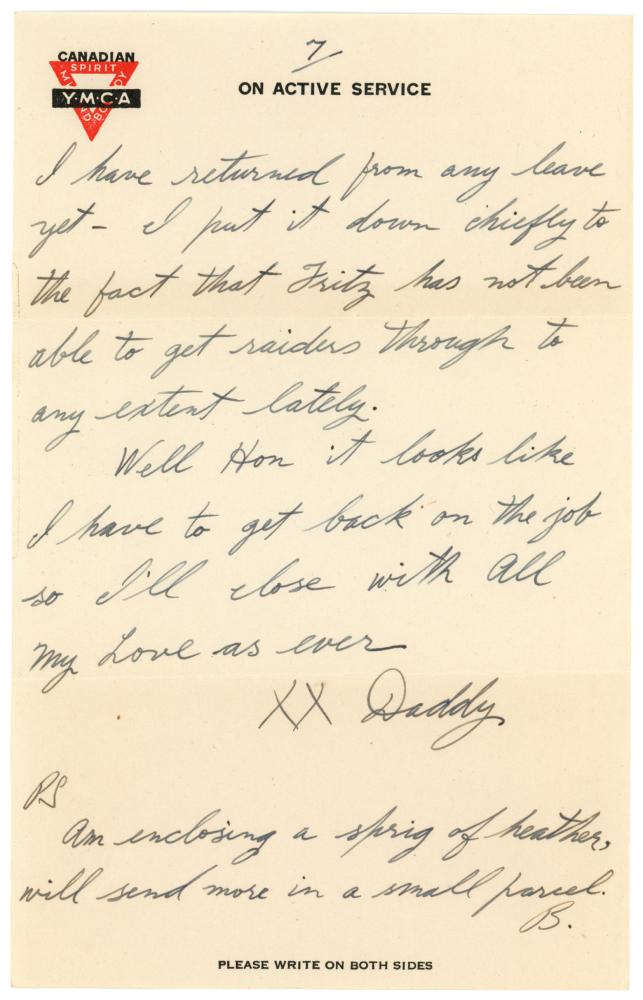 7
CANADIAN
SPIRIT
MIND
BODY
Y·M·C·A
ON ACTIVE SERVICE
I have returned from any leave
yet - I put it down chiefly to
the fact that Fritz has not been
able to get raiders through to
any extent lately.
Well Hon it looks like
I have to get back on the job
so I'll close with All
my Love as ever
XX Daddy
PS
Am enclosing a sprig of heather,
will send more in a small parcel.
B.
PLEASE WRITE ON BOTH SIDES